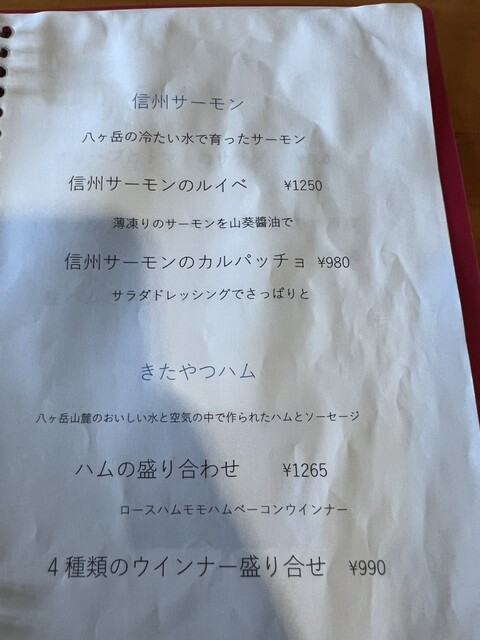 信州サーモン
八ヶ岳の冷たい水で育ったサーモン
信州サーモンのルイベ ¥1250
薄凍りのサーモンを山葵醬油で
信州サーモンのカルパッチョ ¥980
サラダドレッシングでさっぱりと
きたやつハム
八ヶ岳山麓のおいしい水と空気の中で作られたハムとソーセージ
ハムの盛り合わせ ¥1265
ロースハムモモハムベーコンウインナー
4種類のウインナー盛り合せ ¥990